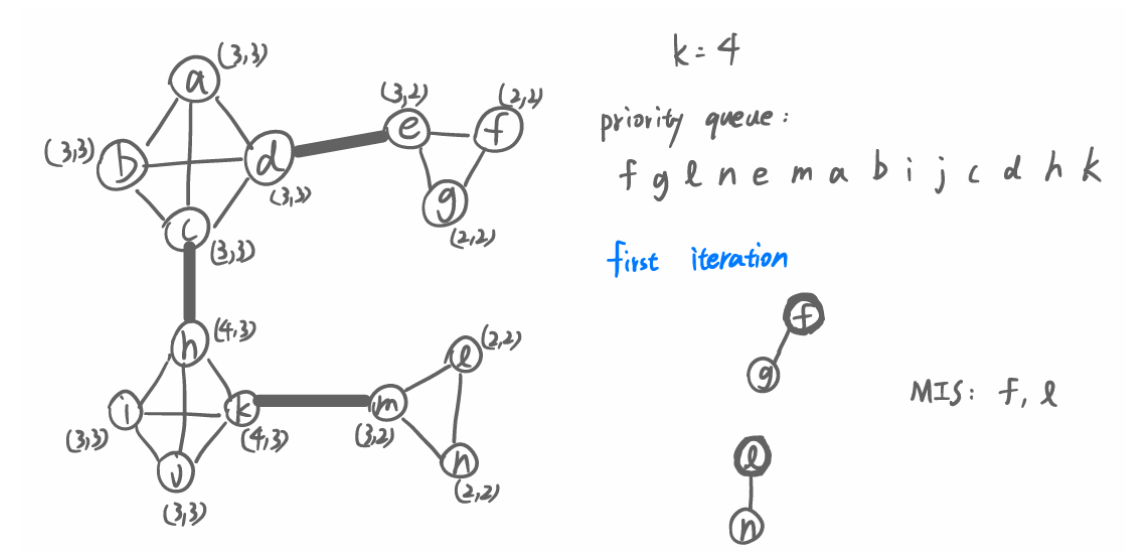 (3,3)
a
(3,3)
b
d
(3,3)
c
(3,3)
(3,2)
e
(2,2)
f
g
(2,2)
h
(4,3)
i
(3,3)
k
(4,3)
j
(3,3)
m
(3,2)
l
(2,2)
n
(2,2)
k = 4
priority queue:
f g l n e m a b i j c d h k
first iteration
f
g
l
n
MIS: f, l